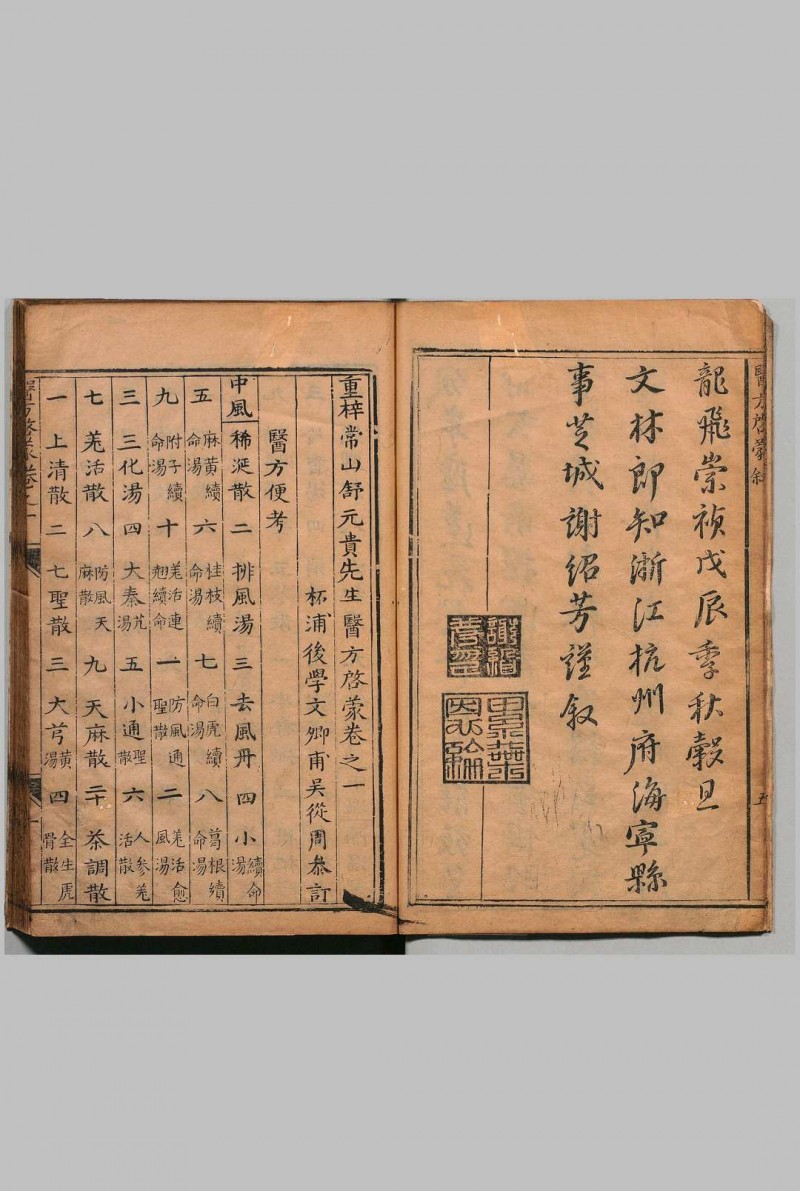 醫方啓蒙敘
五
龍飛崇禎戊辰季秋穀旦
文林郎知浙江杭州府海寧縣
事芝城謝紹芳謹叙
謝紹芳印
重梓常山舒元貴先生醫方啓蒙卷之一
柸浦後學文卿甫吳從周叅訂
醫方便考
中風 一 稀涎散 二 排風湯 三 去風丹 四 小續命湯
五 麻黃續命湯 六 桂枝續命湯 七 白虎續命湯 八 葛根續命湯
九 附子續命湯 十 羗活連翹續命 一 防風通聖散 二 羗活愈風湯
三 三化湯 四 大秦艽湯 五 小通聖散 六 人參羗活散
七 羗活散 八 防風天麻散 九 天麻散 二十 茶調散
一 上清散 二 七聖散 三 大芎黃湯 四 全生虎骨散
醫方啓蒙卷之一
一